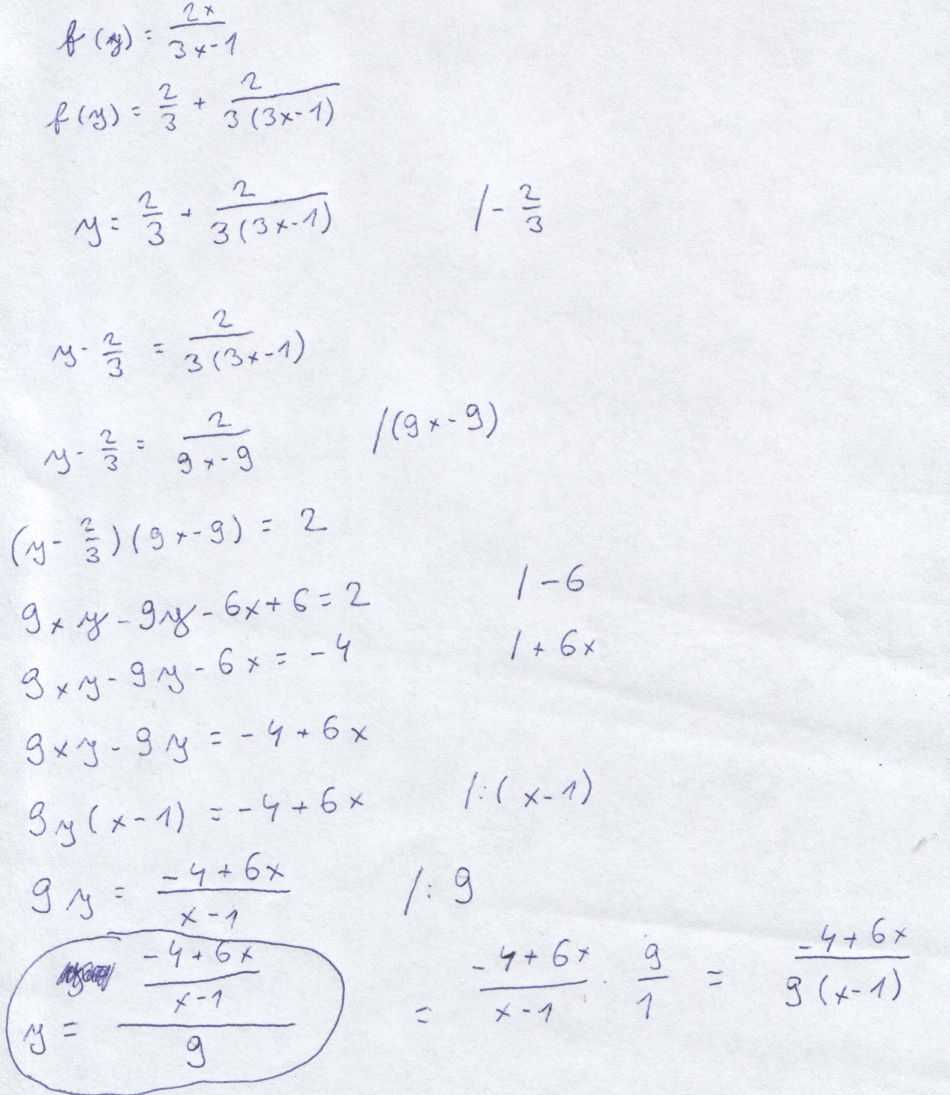 f(y) = \frac{2x}{3x-1}
f(y) = \frac{2}{3} + \frac{2}{3(3x-1)}
y = \frac{2}{3} + \frac{2}{3(3x-1)} /-\frac{2}{3}
y - \frac{2}{3} = \frac{2}{3(3x-1)}
y - \frac{2}{3} = \frac{2}{9x-9} /(9x-9)
(y - \frac{2}{3})(9x-9) = 2
9xy - 9y - 6x + 6 = 2 /-6
9xy - 9y - 6x = -4 /+6x
9xy - 9y = -4 + 6x
9y(x-1) = -4 + 6x /:(x-1)
9y = \frac{-4+6x}{x-1} /:9
y = \frac{\frac{-4+6x}{x-1}}{9} = \frac{-4+6x}{x-1} \cdot \frac{9}{1} = \frac{-4+6x}{9(x-1)}